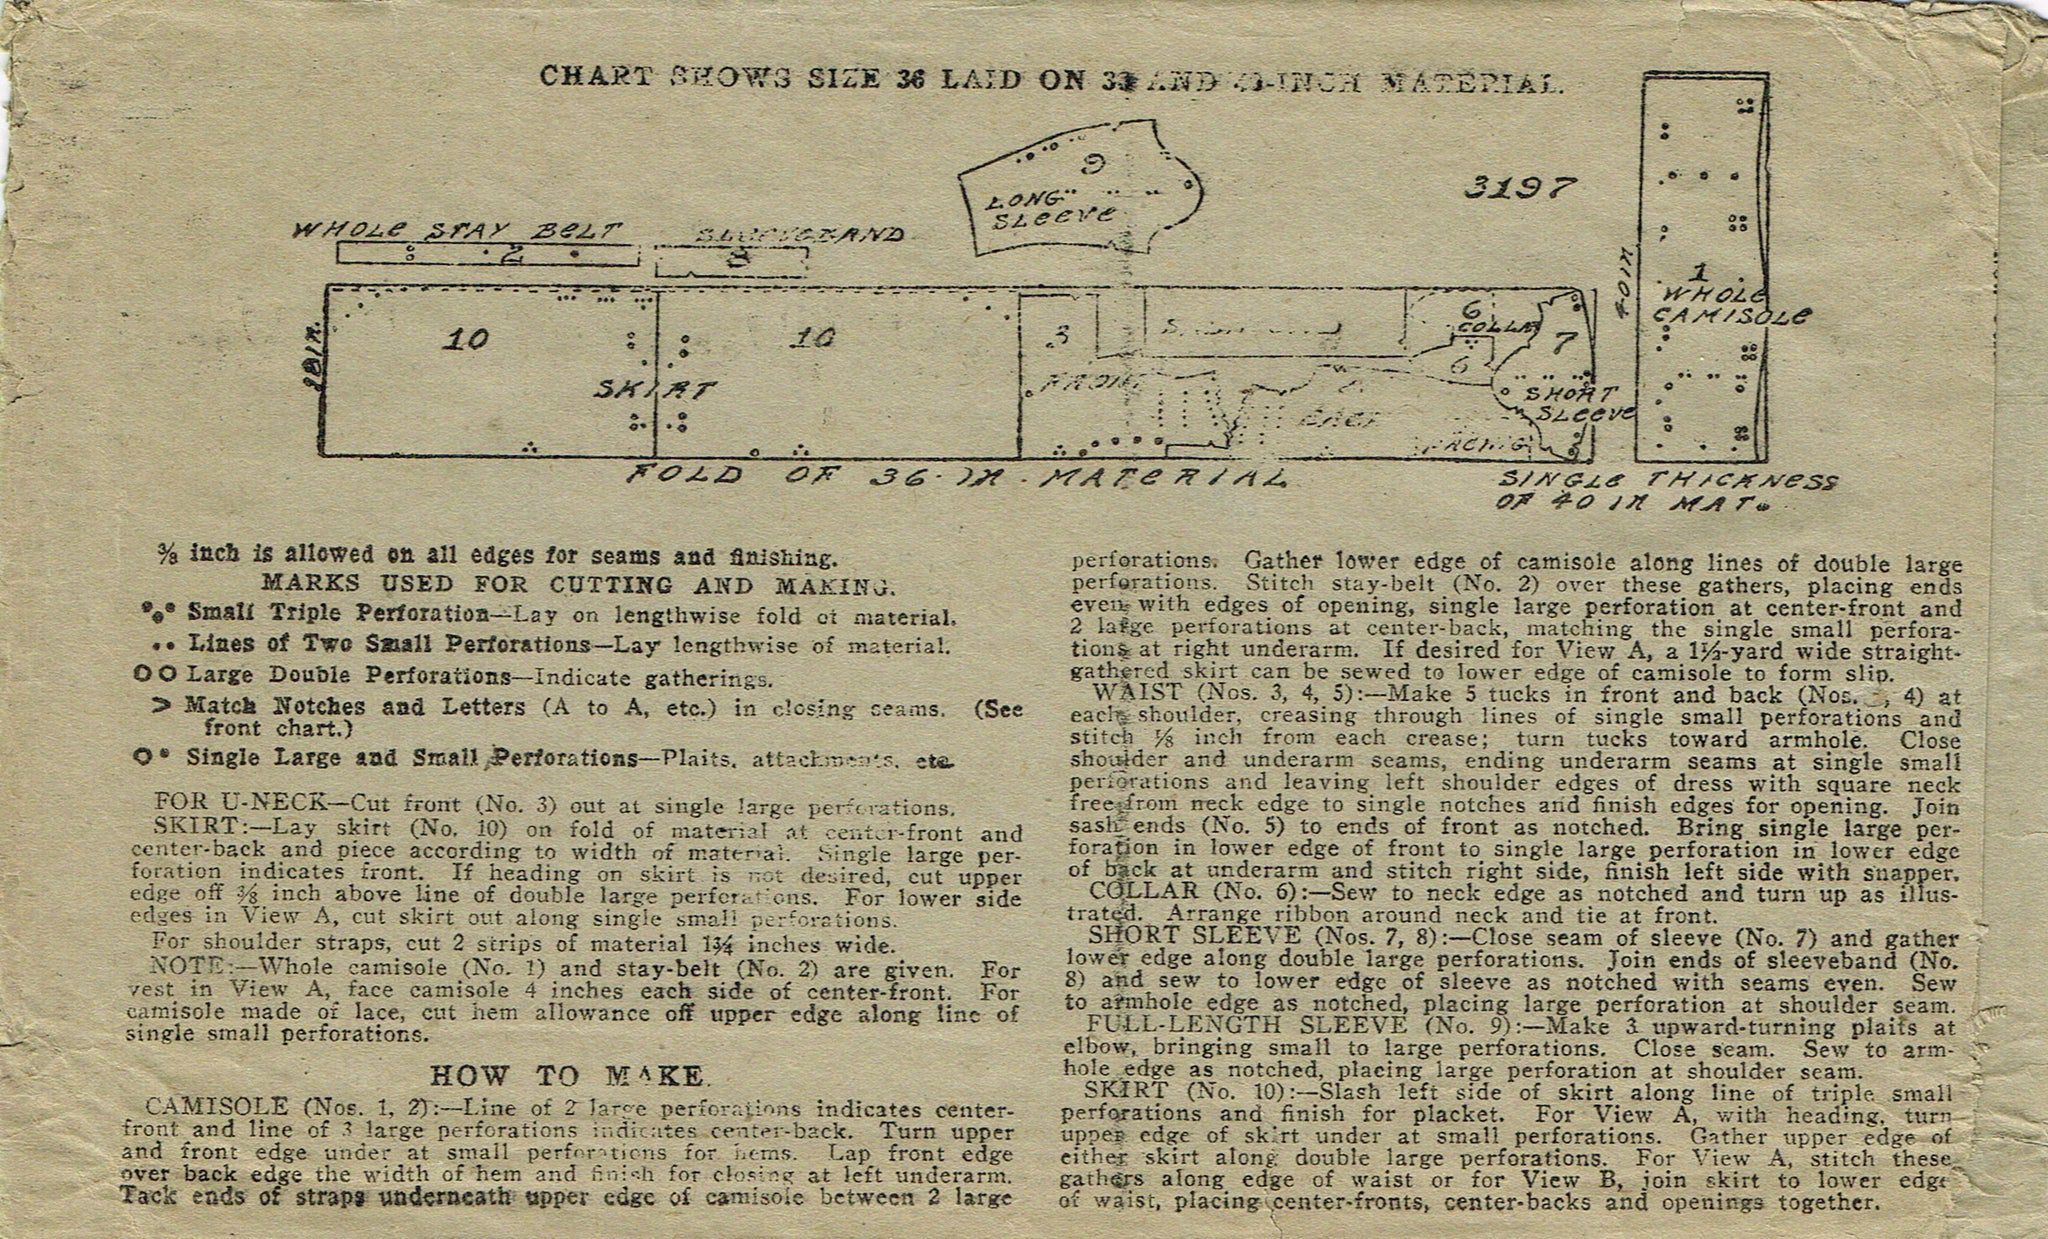 CHART SHOWS SIZE 36 LAID ON 36 AND 40-INCH MATERIAL.
9
LONG
SLEEVE
3197
WHOLE STAY BELT
2
SLEEVEBAND
8
40 IN
1
WHOLE
CAMISOLE
18 IN.
10
SKIRT
10
3
FRONT
6
COLLAR
6
7
SHORT
SLEEVE
FACING
FOLD OF 36-IN. MATERIAL
SINGLE THICKNESS
OF 40 IN MAT.
3/8 inch is allowed on all edges for seams and finishing.
MARKS USED FOR CUTTING AND MAKING.
Small Triple Perforation—Lay on lengthwise fold of material.
.. Lines of Two Small Perforations—Lay lengthwise of material.
OO Large Double Perforations—Indicate gatherings.
> Match Notches and Letters (A to A, etc.) in closing seams. (See
front chart.)
O• Single Large and Small Perforations—Plaits, attachments, etc.
FOR U-NECK—Cut front (No. 3) out at single large perforations.
SKIRT:—Lay skirt (No. 10) on fold of material at center-front and
center-back and piece according to width of material. Single large per-
foration indicates front. If heading on skirt is not desired, cut upper
edge off 3/8 inch above line of double large perforations. For lower side
edges in View A, cut skirt out along single small perforations.
For shoulder straps, cut 2 strips of material 1¾ inches wide.
NOTE:—Whole camisole (No. 1) and stay-belt (No. 2) are given. For
vest in View A, face camisole 4 inches each side of center-front. For
camisole made of lace, cut hem allowance off upper edge along line of
single small perforations.
HOW TO MAKE.
CAMISOLE (Nos. 1, 2):—Line of 2 large perforations indicates center-
front and line of 3 large perforations indicates center-back. Turn upper
and front edge under at small perforations for hems. Lap front edge
over back edge the width of hem and finish for closing at left underarm.
Tack ends of straps underneath upper edge of camisole between 2 large
perforations. Gather lower edge of camisole along lines of double large
perforations. Stitch stay-belt (No. 2) over these gathers, placing ends
even with edges of opening, single large perforation at center-front and
2 large perforations at center-back, matching the single small perfora-
tions at right underarm. If desired for View A, a 1½-yard wide straight-
gathered skirt can be sewed to lower edge of camisole to form slip.
WAIST (Nos. 3, 4, 5):—Make 5 tucks in front and back (Nos. , 4) at
each shoulder, creasing through lines of single small perforations and
stitch ⅛ inch from each crease; turn tucks toward armhole. Close
shoulder and underarm seams, ending underarm seams at single small
perforations and leaving left shoulder edges of dress with square neck
free from neck edge to single notches and finish edges for opening. Join
sash ends (No. 5) to ends of front as notched. Bring single large per-
foration in lower edge of front to single large perforation in lower edge
of back at underarm and stitch right side, finish left side with snapper.
COLLAR (No. 6):—Sew to neck edge as notched and turn up as illus-
trated. Arrange ribbon around neck and tie at front.
SHORT SLEEVE (Nos. 7, 8):—Close seam of sleeve (No. 7) and gather
lower edge along double large perforations. Join ends of sleeveband (No.
8) and sew to lower edge of sleeve as notched with seams even. Sew
to armhole edge as notched, placing large perforation at shoulder seam.
FULL-LENGTH SLEEVE (No. 9):—Make 3 upward-turning plaits at
elbow, bringing small to large perforations. Close seam. Sew to arm-
hole edge as notched, placing large perforation at shoulder seam.
SKIRT (No. 10):—Slash left side of skirt along line of triple small
perforations and finish for placket. For View A, with heading, turn
upper edge of skirt under at small perforations. Gather upper edge of
either skirt along double large perforations. For View A, stitch these
gathers along edge of waist or for View B, join skirt to lower edge
of waist, placing center-fronts, center-backs and openings together.